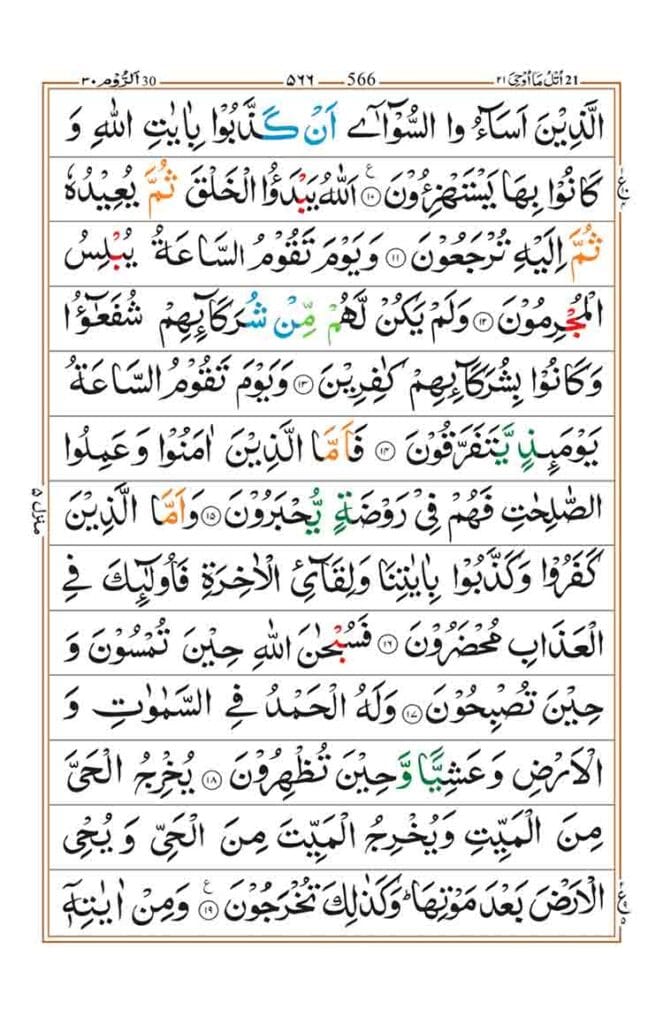 اُتْلُ مَا اُوْحِیَ ٢١ 21 566 ٥٦٦ اَلرُّوْم ٣٠ 30
الَّذِیْنَ اَسَآءُ وا السُّوْٓاٰۤی اَنْ كَذَّبُوْا بِاٰیٰتِ اللّٰهِ وَ
كَانُوْا بِهَا یَسْتَهْزِءُوْنَ ۝١٠ ع اَللّٰهُ یَبْدَؤُا الْخَلْقَ ثُمَّ یُعِیْدُهٗ
ثُمَّ اِلَیْهِ تُرْجَعُوْنَ ۝١١ وَیَوْمَ تَقُوْمُ السَّاعَةُ یُبْلِسُ
الْمُجْرِمُوْنَ ۝١٢ وَلَمْ یَكُنْ لَّهُمْ مِّنْ شُرَكَآىِٕهِمْ شُفَعٰٓؤُا
وَكَانُوْا بِشُرَكَآىِٕهِمْ كٰفِرِیْنَ ۝١٣ وَیَوْمَ تَقُوْمُ السَّاعَةُ
یَوْمَىِٕذٍ یَّتَفَرَّقُوْنَ ۝١٤ فَاَمَّا الَّذِیْنَ اٰمَنُوْا وَعَمِلُوا
الصّٰلِحٰتِ فَهُمْ فِیْ رَوْضَةٍ یُّحْبَرُوْنَ ۝١٥ وَاَمَّا الَّذِیْنَ
كَفَرُوْا وَكَذَّبُوْا بِاٰیٰتِنَا وَلِقَآئِ الْاٰخِرَةِ فَاُولٰٓىِٕكَ فِی
الْعَذَابِ مُحْضَرُوْنَ ۝١٦ فَسُبْحٰنَ اللّٰهِ حِیْنَ تُمْسُوْنَ وَ
حِیْنَ تُصْبِحُوْنَ ۝١٧ وَلَهُ الْحَمْدُ فِی السَّمٰوٰتِ وَ
الْاَرْضِ وَعَشِیًّا وَّحِیْنَ تُظْهِرُوْنَ ۝١٨ یُخْرِجُ الْحَیَّ
مِنَ الْمَیِّتِ وَیُخْرِجُ الْمَیِّتَ مِنَ الْحَیِّ وَیُحْیِ
الْاَرْضَ بَعْدَ مَوْتِهَاؕ وَكَذٰلِكَ تُخْرَجُوْنَ ۝١٩ ع وَمِنْ اٰیٰتِهٖۤ
منزل ٥